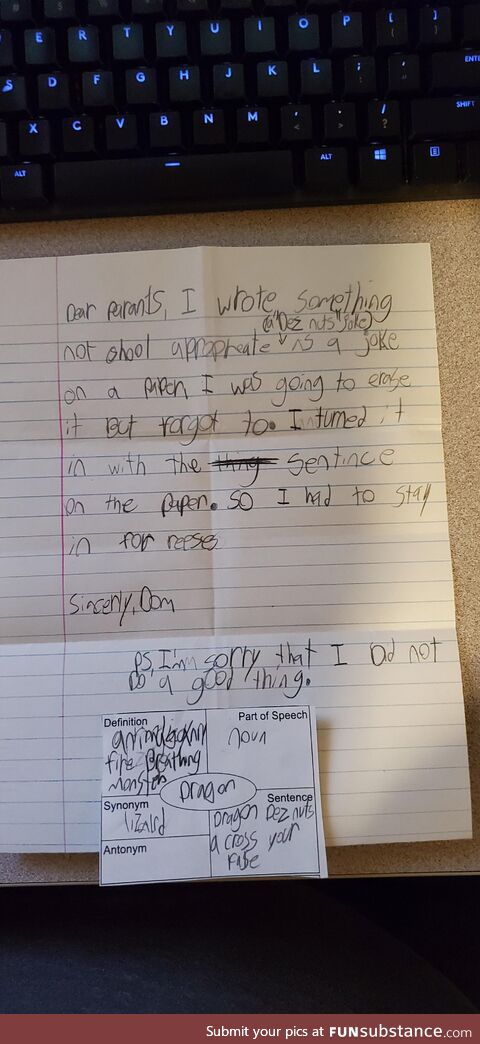 E R T Y U I O P [ ]
S D F G H J K L ; '
X C V B N M , . / ?
ENTE
SHIFT
ALT ALT
Dear Parants, I wrote something
(a "Dez nuts" joke)
not shool appropreate as a joke
on a papen I was going to erase
it But forgot to. I inturned it
in with the thing sentince
on the papen. so I had to stay
in for reeses
Sincerly, Dom
PS, I'm sorry that I Did not
Do a good thing.
Definition
fire Breathing
monster
Part of Speech
noun
Dragon
Synonym
lizard
Antonym
Sentence
Dragon Dez nuts
a cross your
fase
Submit your pics at FUNsubstance.com